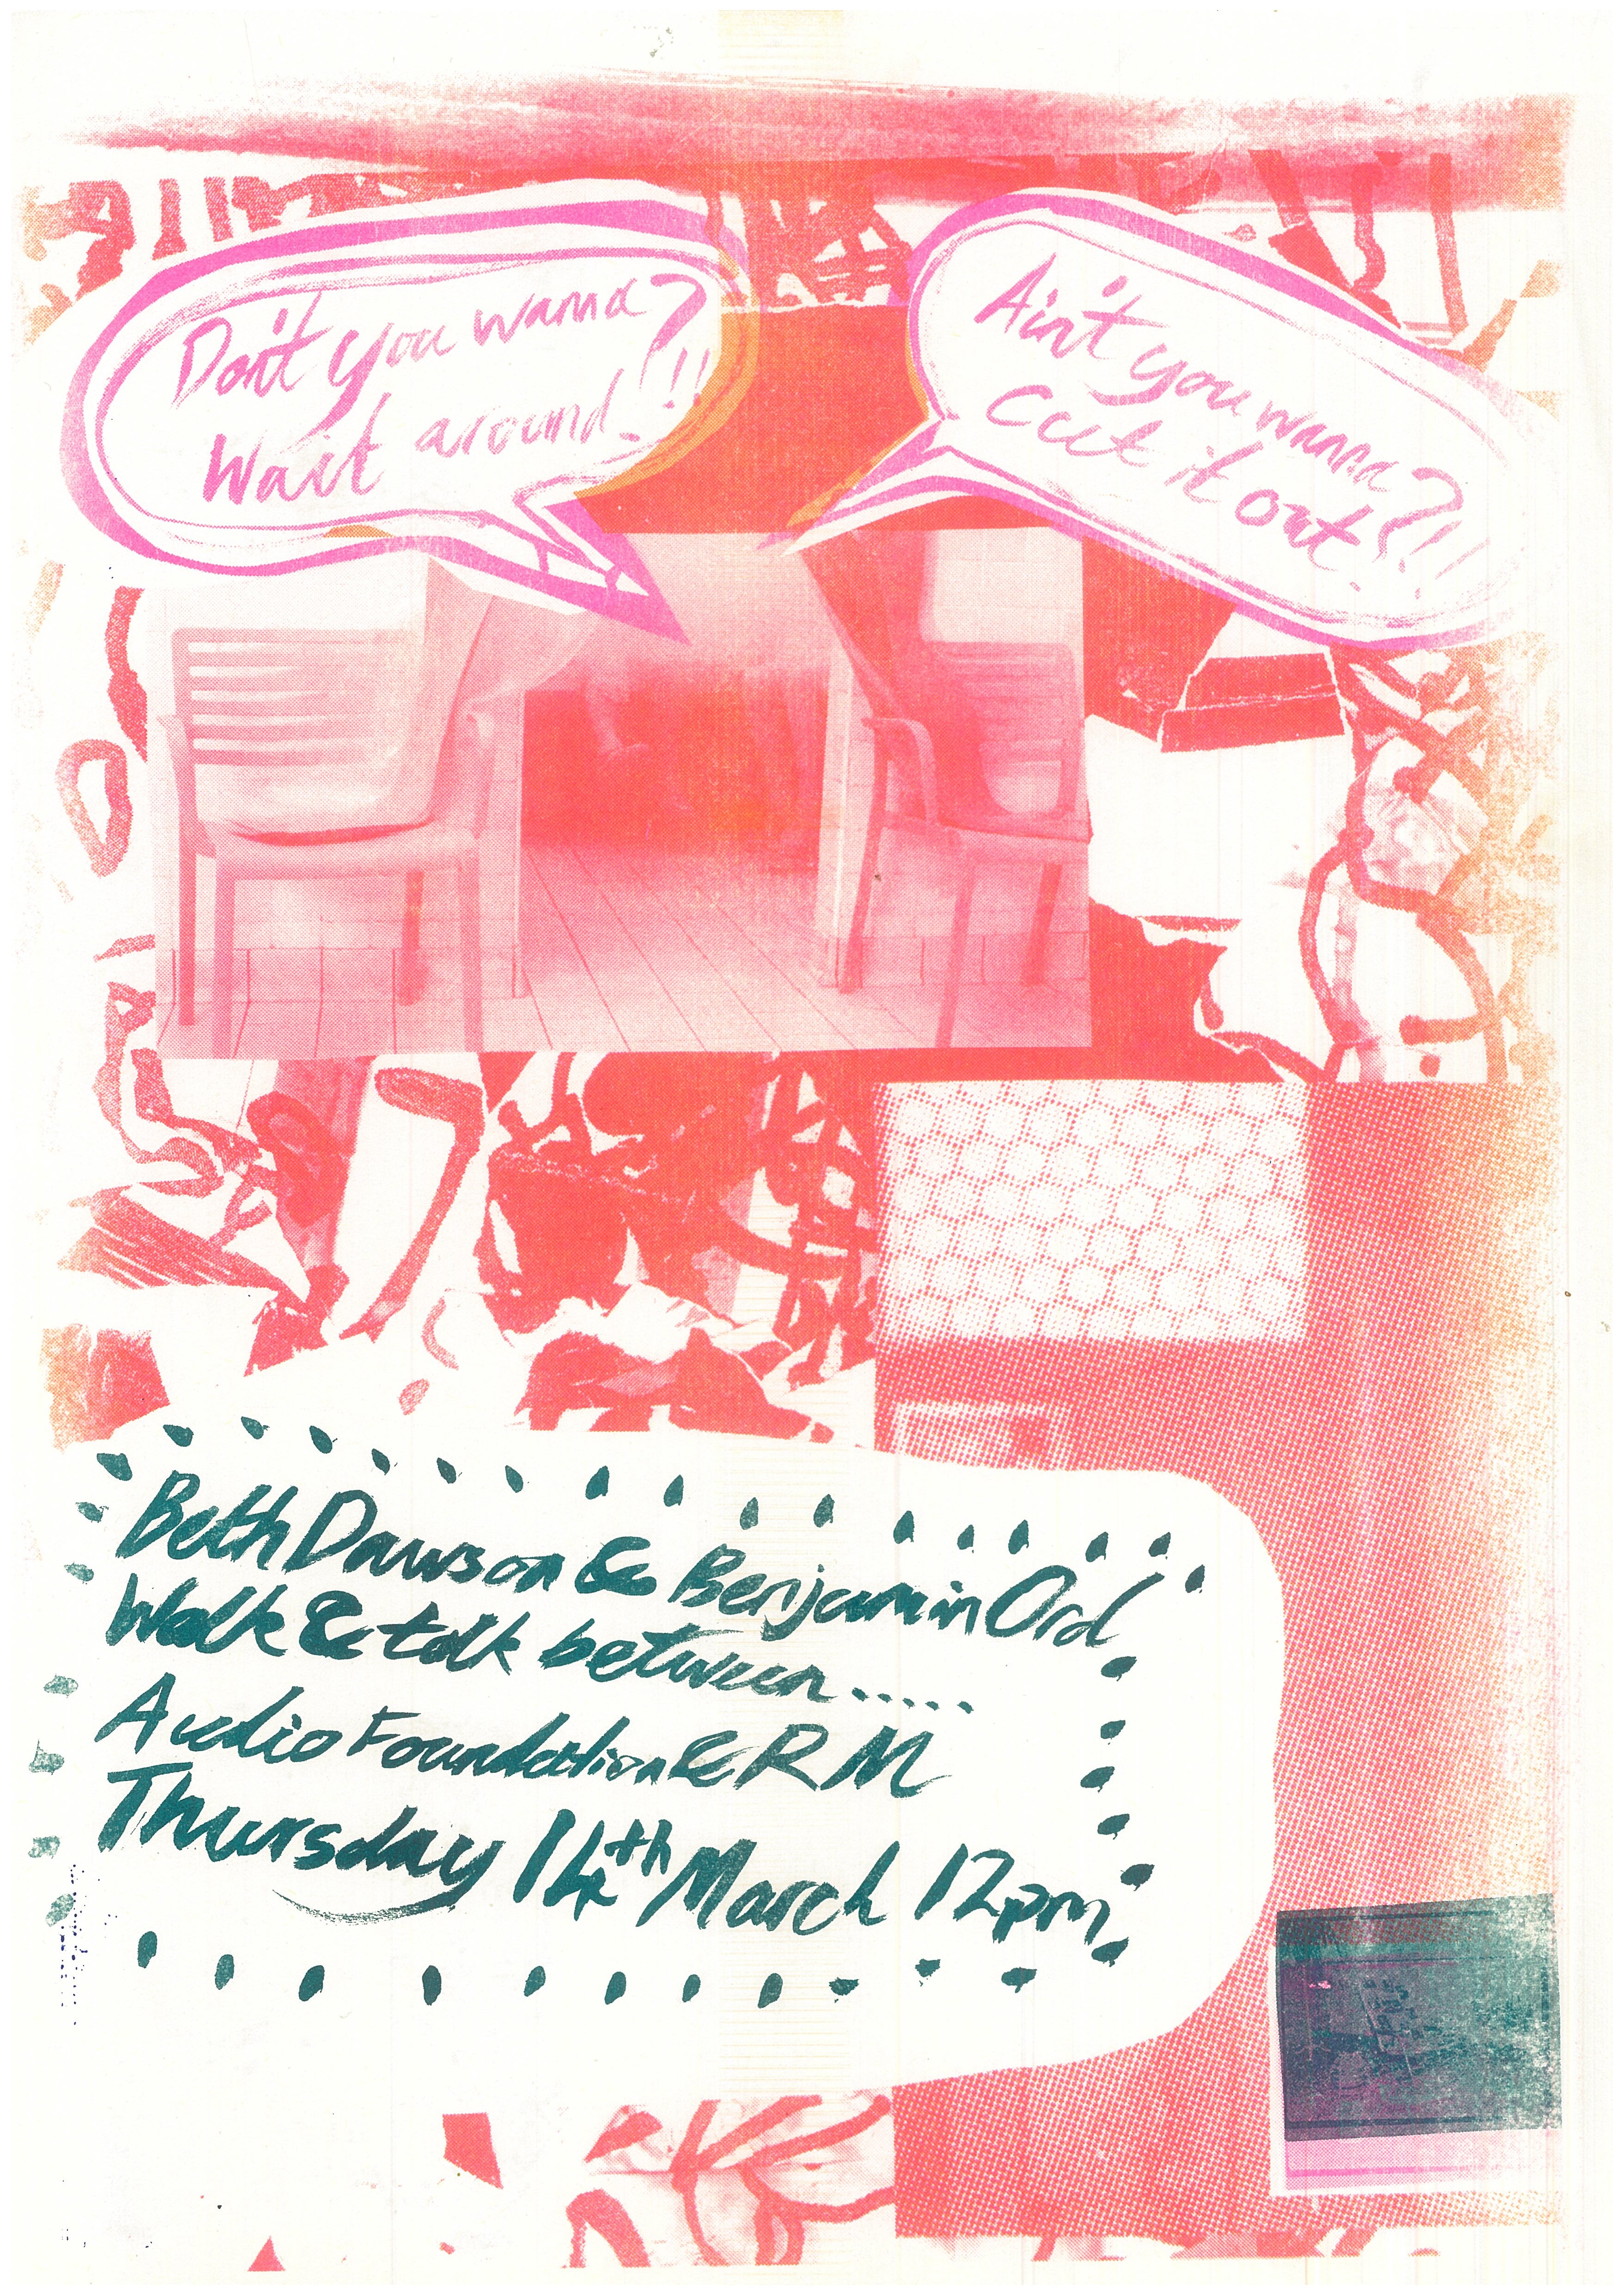 Don't you wanna?
Wait around.!!
Ain't you wanna?
Cut it out.!!
Beth Dawson & Benjamin Ord
Walk & talk between.....
Audio Foundation & RM
Thursday 14th March 12pm